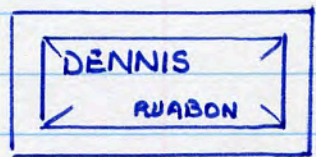 DENNIS
RUABON